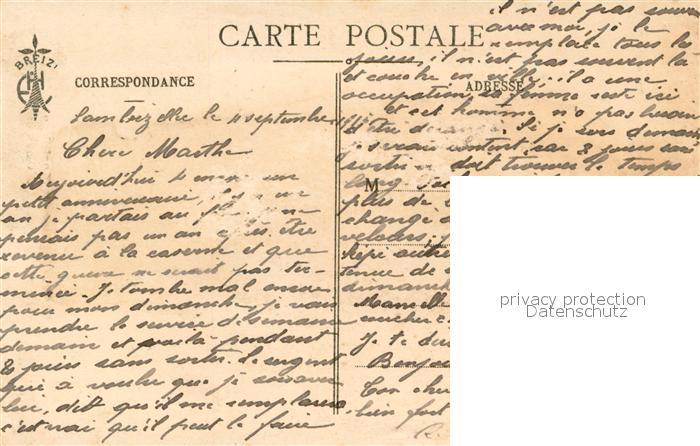 BREIZ
CARTE POSTALE
CORRESPONDANCE
ADRESSE
M
le 4 septembre
Chere Marthe
Aujourd'hui
petit anniversaire, il y a
an je partais au
pensais pas un an après être
revenu à la caserne et que
cette guerre ne serait pas ter-
minée. Je tombe mal encore
pour mon dimanche, je vais
prendre le service de semaine
demain et voilà pendant
8 jours sans sortir. Le sergent
qui a voulu que je
lui, dit qu'il me remplacera
c'est vrai qu'il peut le faire
il n'est pas souvent
avec moi, je le
remplace tous les
jours, il n'est pas souvent là
et couche en ville, il a une
occupation, sa femme est ici
et cet homme n'a pas besoin
d'être dérangé. Si je sors demain
je serais content, car 8 jours sans
sortir doit trouver le temps
long.
plus de
change
velours
Képi
tenue de
dimanche
Marcelle
coucher
Je te
Bonjour
Ton cher
bien fort
privacy protection
Datenschutz